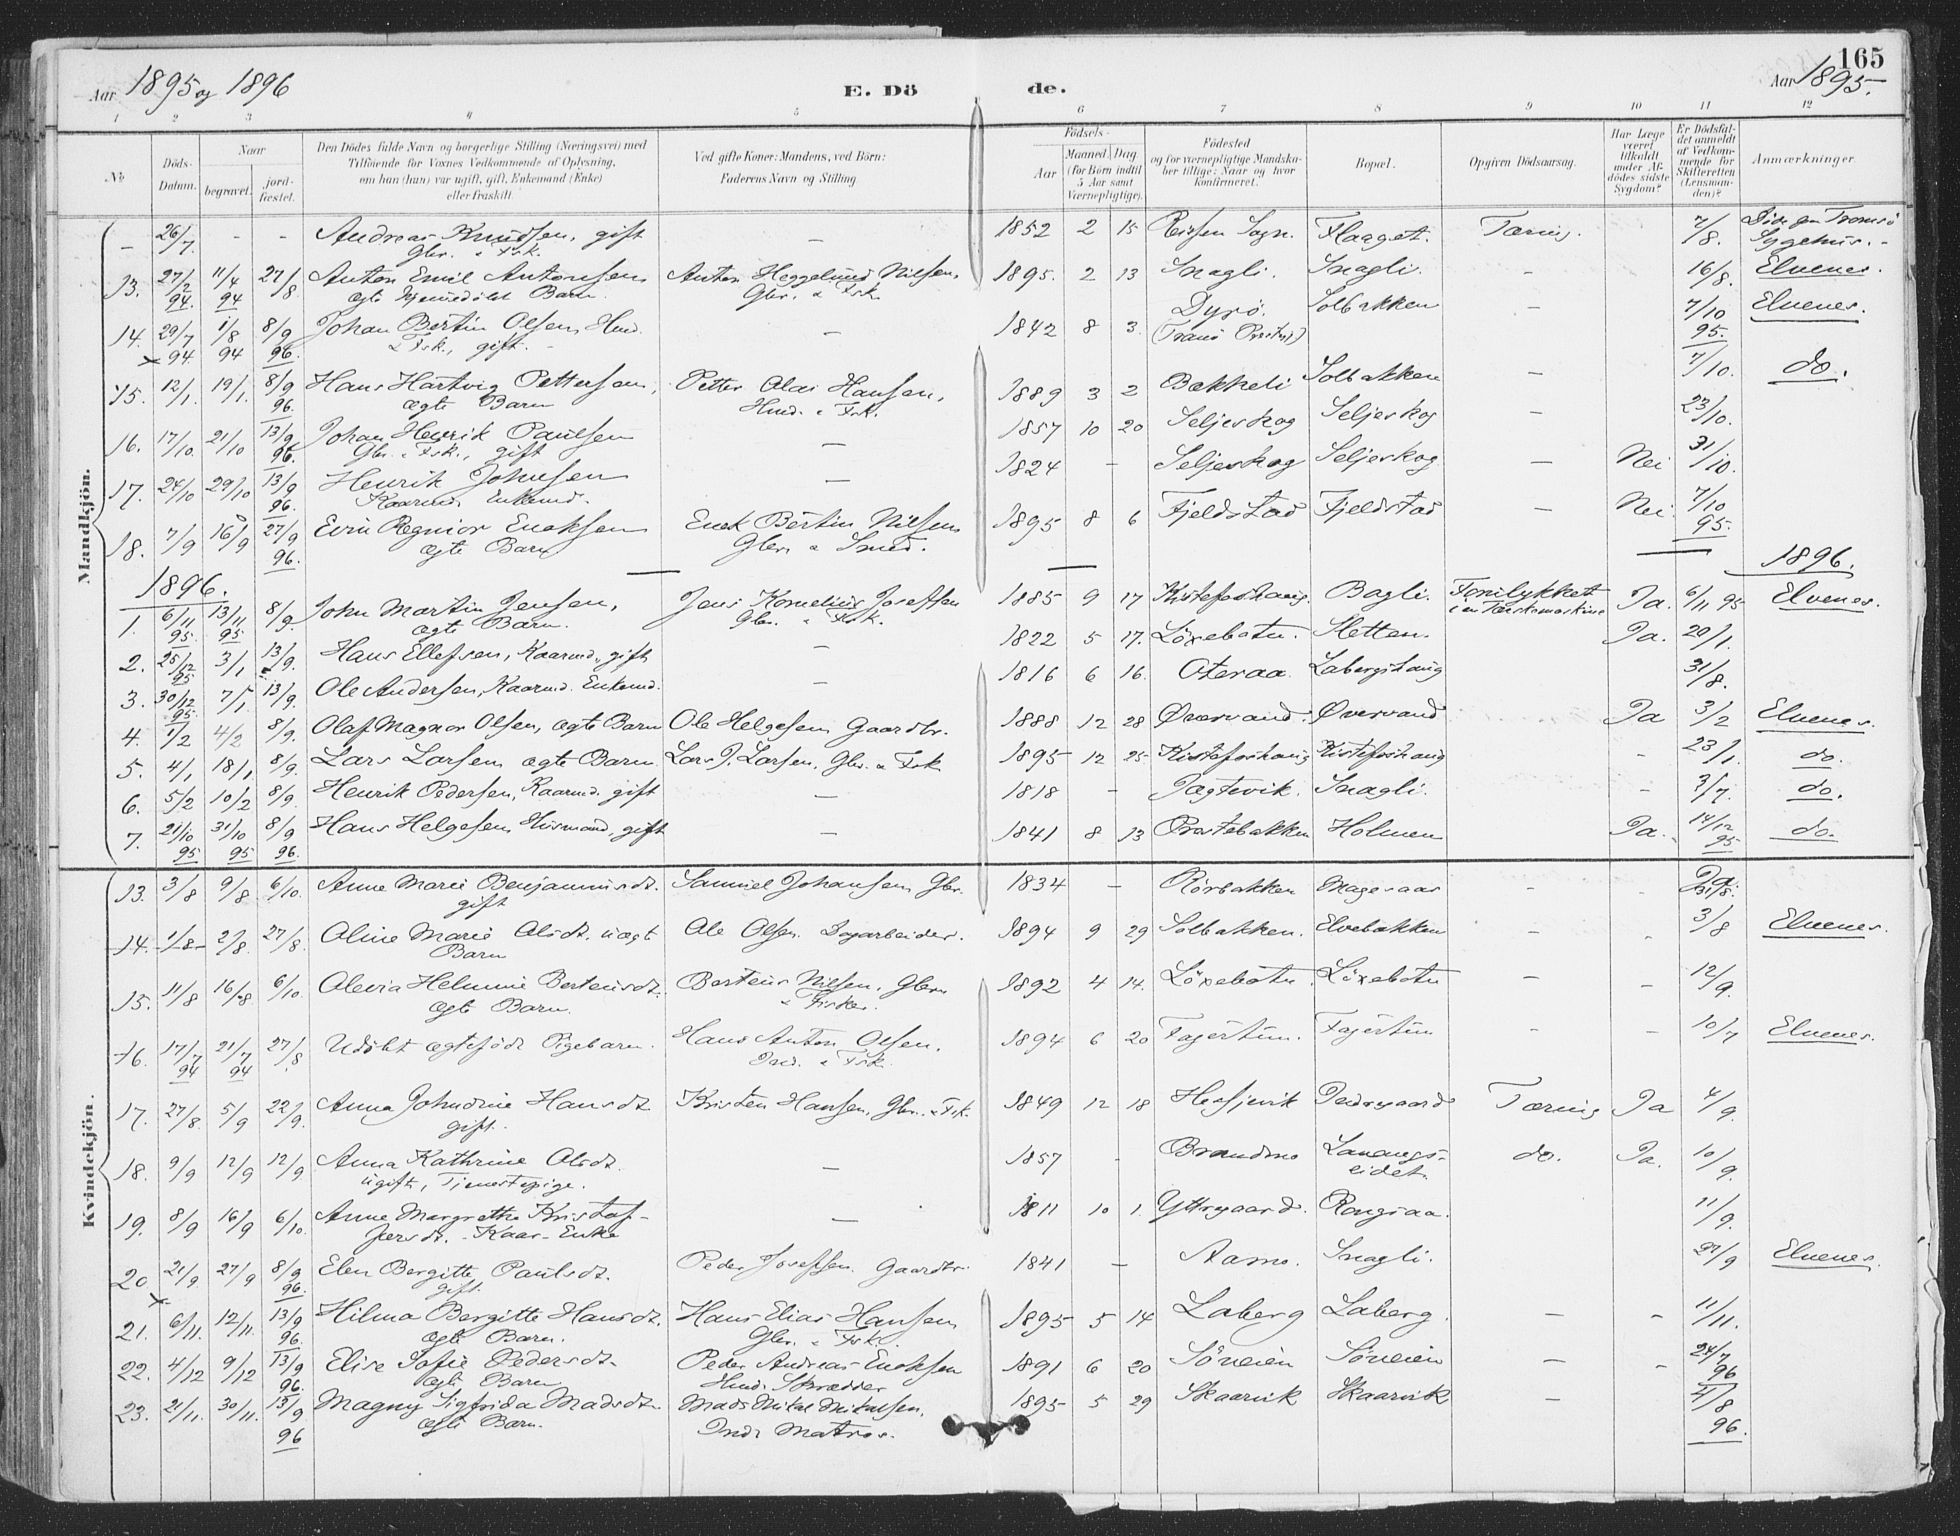 165
Aar 1895 og 1896
E. Dö
de.
Aar 1895.
1 2 3 4 5 6 7 8 9 10 11 12
No
Döds-Datum.
Naar
begravet.
jord-fæstet.
Den Dödes fulde Navn og borgerlige Stilling (Næringsvei) med
Tilföiende for Voxnes Vedkommende af Oplysning,
om han (hun) var ugift, gift, Enkemand (Enke)
eller fraskilt.
Ved gifte Koner: Mandens, ved Börn:
Faderens Navn og Stilling.
Födsels-
Aar
Maaned. Dag
(for Börn indtil
5 Aar samt
Værnepligtige).
Födested
og for værnepligtige Mandska-
ber tillige: Naar og hvor
konfirmeret.
Bopæl.
Opgiven Dödsaarsag.
Har Læge
været
tilkaldt
under Af-
dödes sidste
Sygdom?
Er Dödsfal-
det anmeldt
af Vedkom-
mende for
Skifteretten
(Lensman-
den)?
Anmærkninger.
Mandkjön.
- 26/7. - - Andreas Knudsen, gift - 1852 2 15 Reisen Sogn. Flaaget. Tæring. 7/8. Döde paa Tromsö
Gbr. & Fsk. Sygehus.
13. 27/2 94. 11/4 94 27/8 Anton Emil Antonsen Anton Heggelund Nilsen, 1895. 2 13 Snagli. Snagli. - 16/8. Elvenes.
ægte hjemmedöbt Barn. Gbr. & Fsk.
14. 29/7 94. 1/8 94 8/9 96. Johan Bertin Olsen, Hmd. - 1842 8 3. Dyrö. Solbakken - 7/10 95. Elvenes.
& Fsk., gift. (Tranö Præstgj)
15. 12/1. 19/1. 8/9 96. Hans Hartvig Pettersen, Petter Olai Hansen, 1889 3 2 Bakkeli Solbakken - 7/10. do.
ægte Barn Hmd. & Fsk.
16. 17/10. 21/10 13/9 96. Johan Henrik Paulsen - 1857 10 20 Seljeskog Seljeskog - 23/10.
Gbr. & Fsk., gift
17. 24/10 29/10 13/9 96. Henrik Johnsen - 1824 - Seljeskog Seljeskog - Nei 31/10.
Kaarmd. Enkemd.
18. 7/9 16/9 27/9 96. Evin Regnior Enoksen Enok Bertin Nilsen 1895 8 6 Fjeldstad Fjeldstad - Nei 7/10 95.
ægte Barn Gbr. & Smed.
1896. 1896.
1. 6/11 95. 13/11 95 8/9. John Martin Jensen, Jens Kornelius Josefsen 1885 9 17 Kistefoshaug. Bagli. Forulykket Ja. 6/11 95 Elvenes.
ægte Barn. Gbr. & Fsk. i en Tærskemaskine
2. 25/12 95 3/1 13/9. Hans Ellefsen, Kaarmd., gift - 1822 5 17. Löxebotn. Sletten. Ja. 29/1.
3. 30/12 95. 7/1 13/9. Ole Andersen, Kaarmd. Enkemd. - 1816 6 16. Oteraa. Labergshaug 31/8.
4. 1/2 4/2 8/9. Olaf Magnor Olsen, ægte Barn Ole Helgesen Gaardbr. 1888 12 28 Øvervand. Øvervand Ja 3/2 Elvenes.
5. 4/1 18/1 8/9. Lars Larsen ægte Barn Lars J. Larsen, Gbr. & Fsk 1895 12 25 Kistefoshaug Kistefoshaug - 23/1. do.
6. 5/2 10/2 8/9. Henrik Pedersen, Kaarmd. gift - 1818 - Jægtevik. Snagli. - 3/7. do.
7. 21/10 95 31/10 95 8/9 96. Hans Helgesen Husmand, gift - 1841 8 13 Præstebakken Holmen Ja. 14/12 95 do.
Kvindekjön.
13. 3/8 9/8. 6/10. Anne Marie Benjaminsdt. Samuel Johansen Gbr. 1834 - Rörbakken Magesaas - Ja 31/8.
gift
14. 1/8 2/8. 27/8. Oline Marie Olsdt. uægt Ole Olsen. Dagarbeider. 1894 9 29 Solbakken. Elvebakken - 3/8 Elvenes.
Barn
15. 11/8 16/8 6/10. Olevia Helmine Berteusdt. Berteus Nilsen, Gbr. 1892 4 14. Löxebotn. Löxebotn - - 12/9.
ægte Barn. & Fisker.
16. 17/7 94 21/7 94 27/8. Udöbt ægtefödt Pigebarn. Hans Anton Olsen. 1894 6 20 Fagertun. Fagertun - - 10/7 Elvenes.
Ind. & Fsk.
17. 27/8. 5/9 22/9. Anna Johndine Hansdt Kristen Hansen, Gbr. & Fsk. 1849 12 18 Hessjevik Indregaard Tæring Ja 4/9.
gift.
18. 9/9 12/9 12/9 Anna Kathrine Olsdt. - 1857 - Brandmo Lavangs- do. Ja. 10/9.
ugift, Tjenestepige. eidet.
19. 8/9 16/9 6/10. Anne Margrethe Kristof- - 1811 10 1. Yttregaard. Rongsaa. 11/9.
fersdt. - Kaar-Enke
20 21/9. 27/9 8/9 96. Elen Bergitte Paulsdt. Peder Josefsen Gaardbr. 1841 - Aamo. Snagli. 27/9 Elvenes.
gift.
21. 6/11. 12/11. 13/9 96. Hilma Bergitte Hansdt. Hans Elias Hansen 1895 5 14 Laberg Laberg. - - 11/11.
ægte Barn. Gbr. & Fsk.
22. 4/12 9/12 13/9 96. Elise Sofie Pedersdt. Peder Andreas Enoksen 1891 6 20 Sörreien Sörreien - - 24/7 96
ægte Barn Hmd. Skrædder
23. 21/11. 30/11. 13/9 96 Magny Sigfrida Madsdt. Mads Mikal Mikalsen, 1895 5 29 Skaarvik Skaarvik - 4/8 96.
ægte Barn. Inds. Matros.